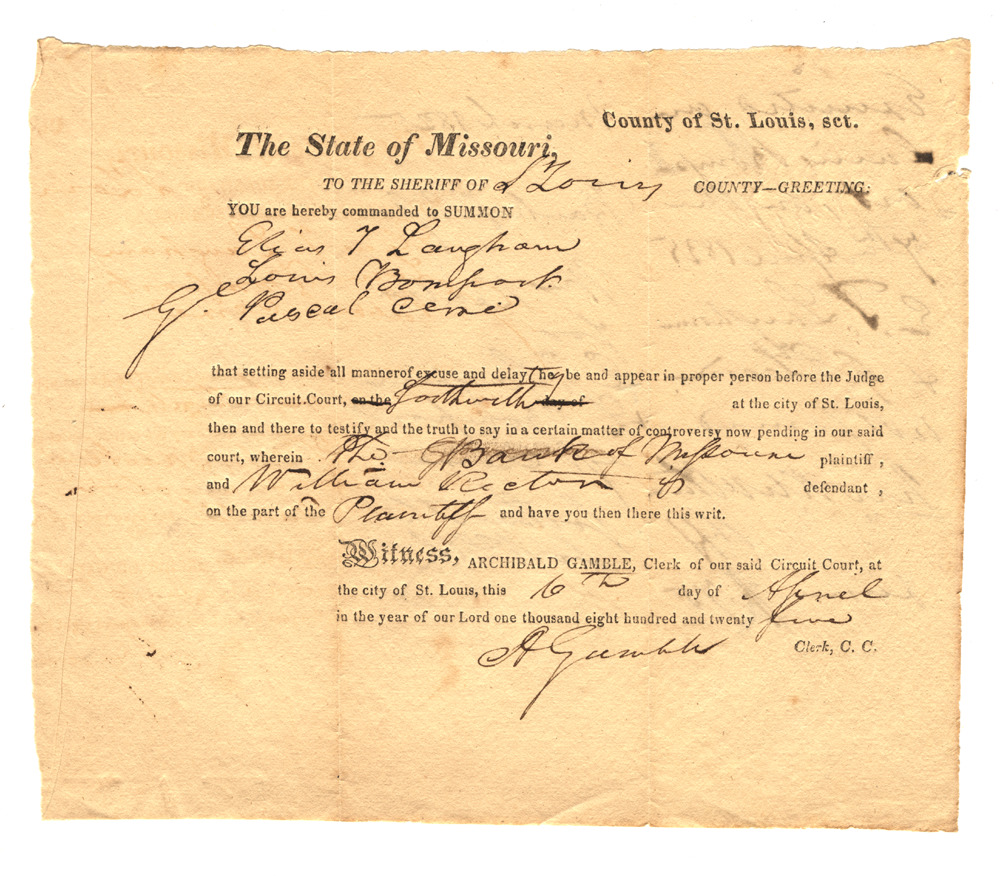 County of St. Louis, sct.
The State of Missouri,
TO THE SHERIFF OF St Louis COUNTY—GREETING:
YOU are hereby commanded to SUMMON
Elias T Langham
Louis Bompart
G. Pascal Cerré
that setting aside all manner of excuse and delay they be and appear in proper person before the Judge
of our Circuit Court, on the forthwith day of at the city of St. Louis,
then and there to testify and the truth to say in a certain matter of controversy now pending in our said
court, wherein The Bank of Missouri plaintiff,
and William Rector defendant,
on the part of the Plaintiff and have you then there this writ.
Witness, ARCHIBALD GAMBLE, Clerk of our said Circuit Court, at
the city of St. Louis, this 6th day of April
in the year of our Lord one thousand eight hundred and twenty five
A Gamble Clerk, C. C.